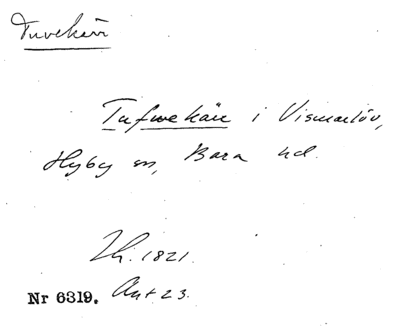 Tuvekärr
Tufwekärr i Vismarlöv,
Hyby sn, Bara hd.
1821.
Nr 6319. Ant 23.